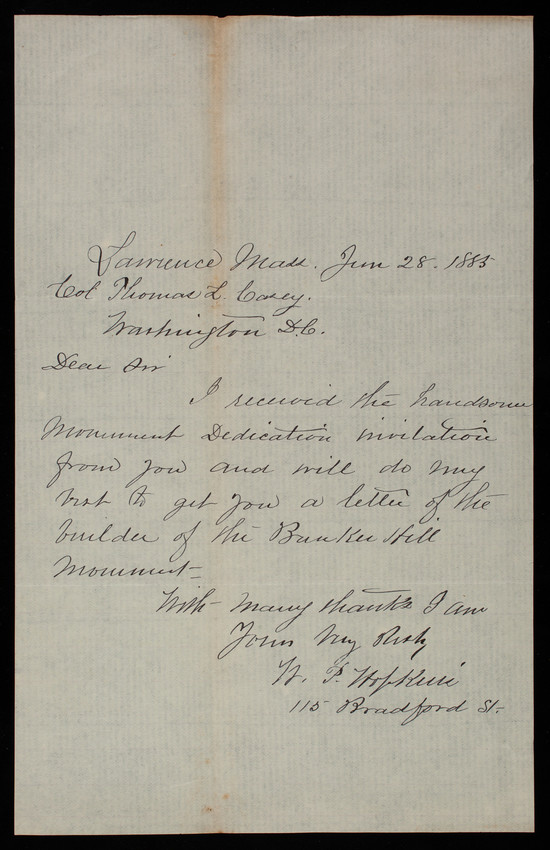 Lawrence Mass. Jun 28. 1885
Col Thomas L. Casey.
Washington D.C.
Dear Sir
I received the handsome
Monument Dedication invitation
from you and will do my
best to get you a letter of the
builder of the Bunker Hill
Monument
With many thanks I am
Yours Very Resty
W. P. Hopkins
115 Bradford St.